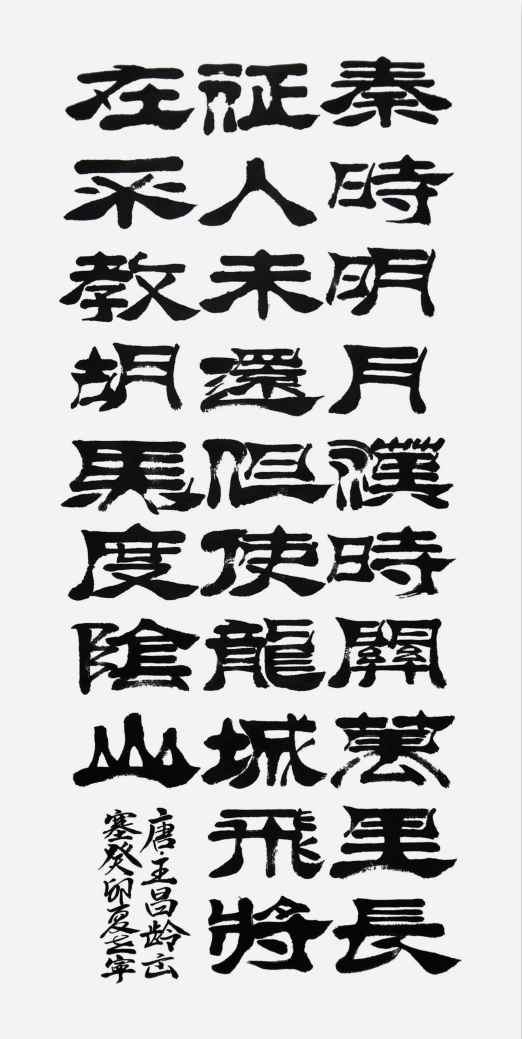 秦時明月漢時關萬里長
征人未還但使龍城飛將
在不教胡馬度陰山
唐·王昌龄出
塞癸卯夏之寧